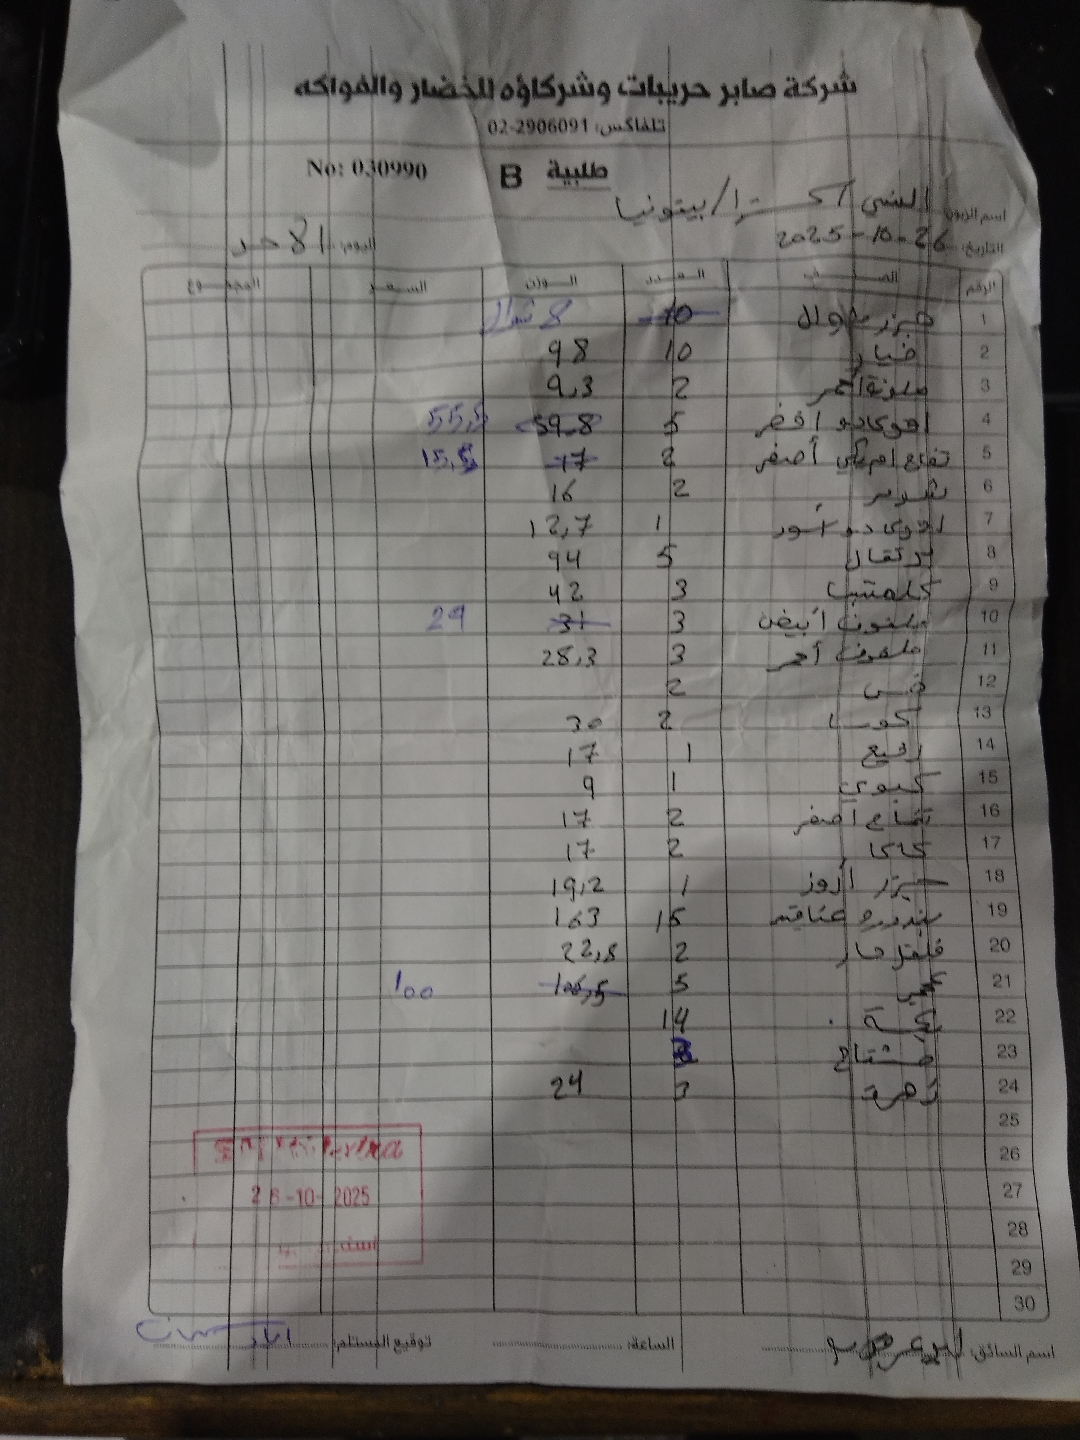 شركة صابر حريبات وشركاؤه للخضار والفواكه
تلفاكس: 02-2906091
No: 030990 B طلبية
اسم الزبون: السني اكسترا/بيتونيا
التاريخ: 26-10-2025 اليوم: الأحد
الرقم الصنف العدد الوزن السعر المجموع
1 10 8
2 خيار 10 98
3 ملونة أحمر 2 9,3
4 افوكادو اخضر 5 59.8 55,5
5 تفاح امريكي أصفر 2 17 15,5
6 2 16
7 افوكادو أسود 1 12,7
8 برتقال 5 94
9 كلمنتينا 3 42
10 ملفوف أبيض 3 31 29
11 ملفوف أحمر 3 28,3
12 خس 2
13 كوسا 2 30
14 رفيع 1 17
15 كيوي 1 9
16 تفاح أصفر 2 17
17 كاكا 2 17
18 1 19,2
19 بندورة عناقيد 15 163
20 فلفل حار 2 22,8
21 5 106,5 100
22 14
23
24 زهرة 3 24
25
26
27
28
29
30
26-10-2025
اسم السائق: الساعة: توقيع المستلم: